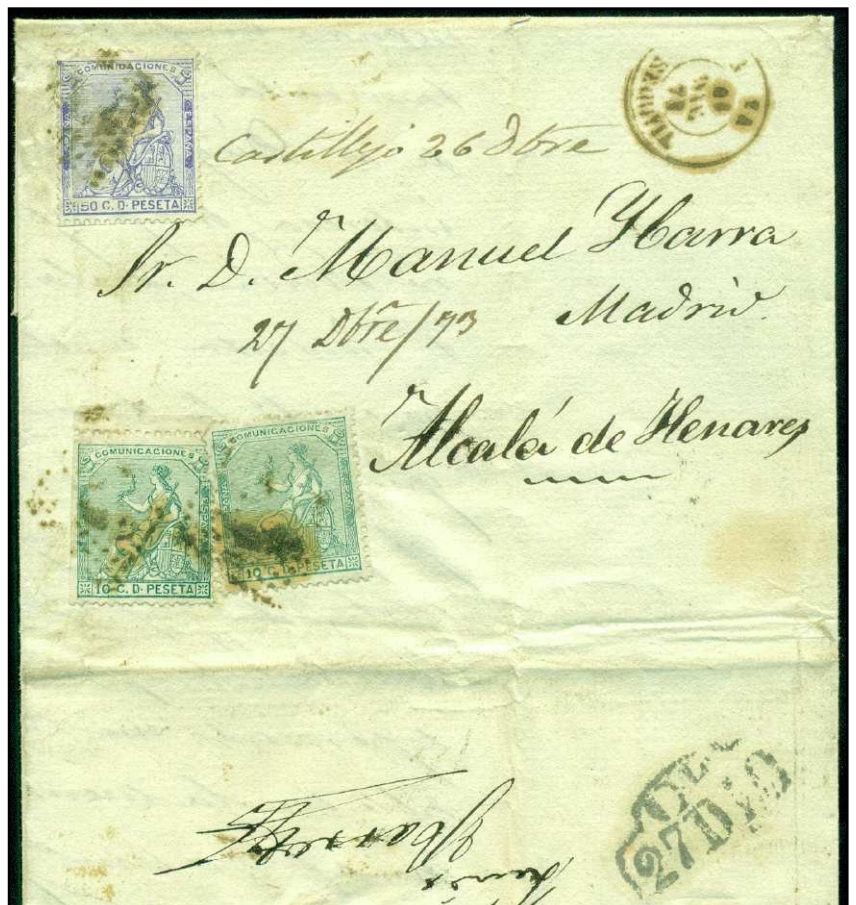 COMUNICACIONES
ESPAÑA
50 C. D. PESETA
Castillejo 26 Dbre
Sr. D. Manuel Ybarra
27 Dbre/73 Madrid.
Alcalá de Henares
COMUNICACIONES
ESPAÑA
10 C. D. PESETA
COMUNICACIONES
10 C. D. PESETA
27 D